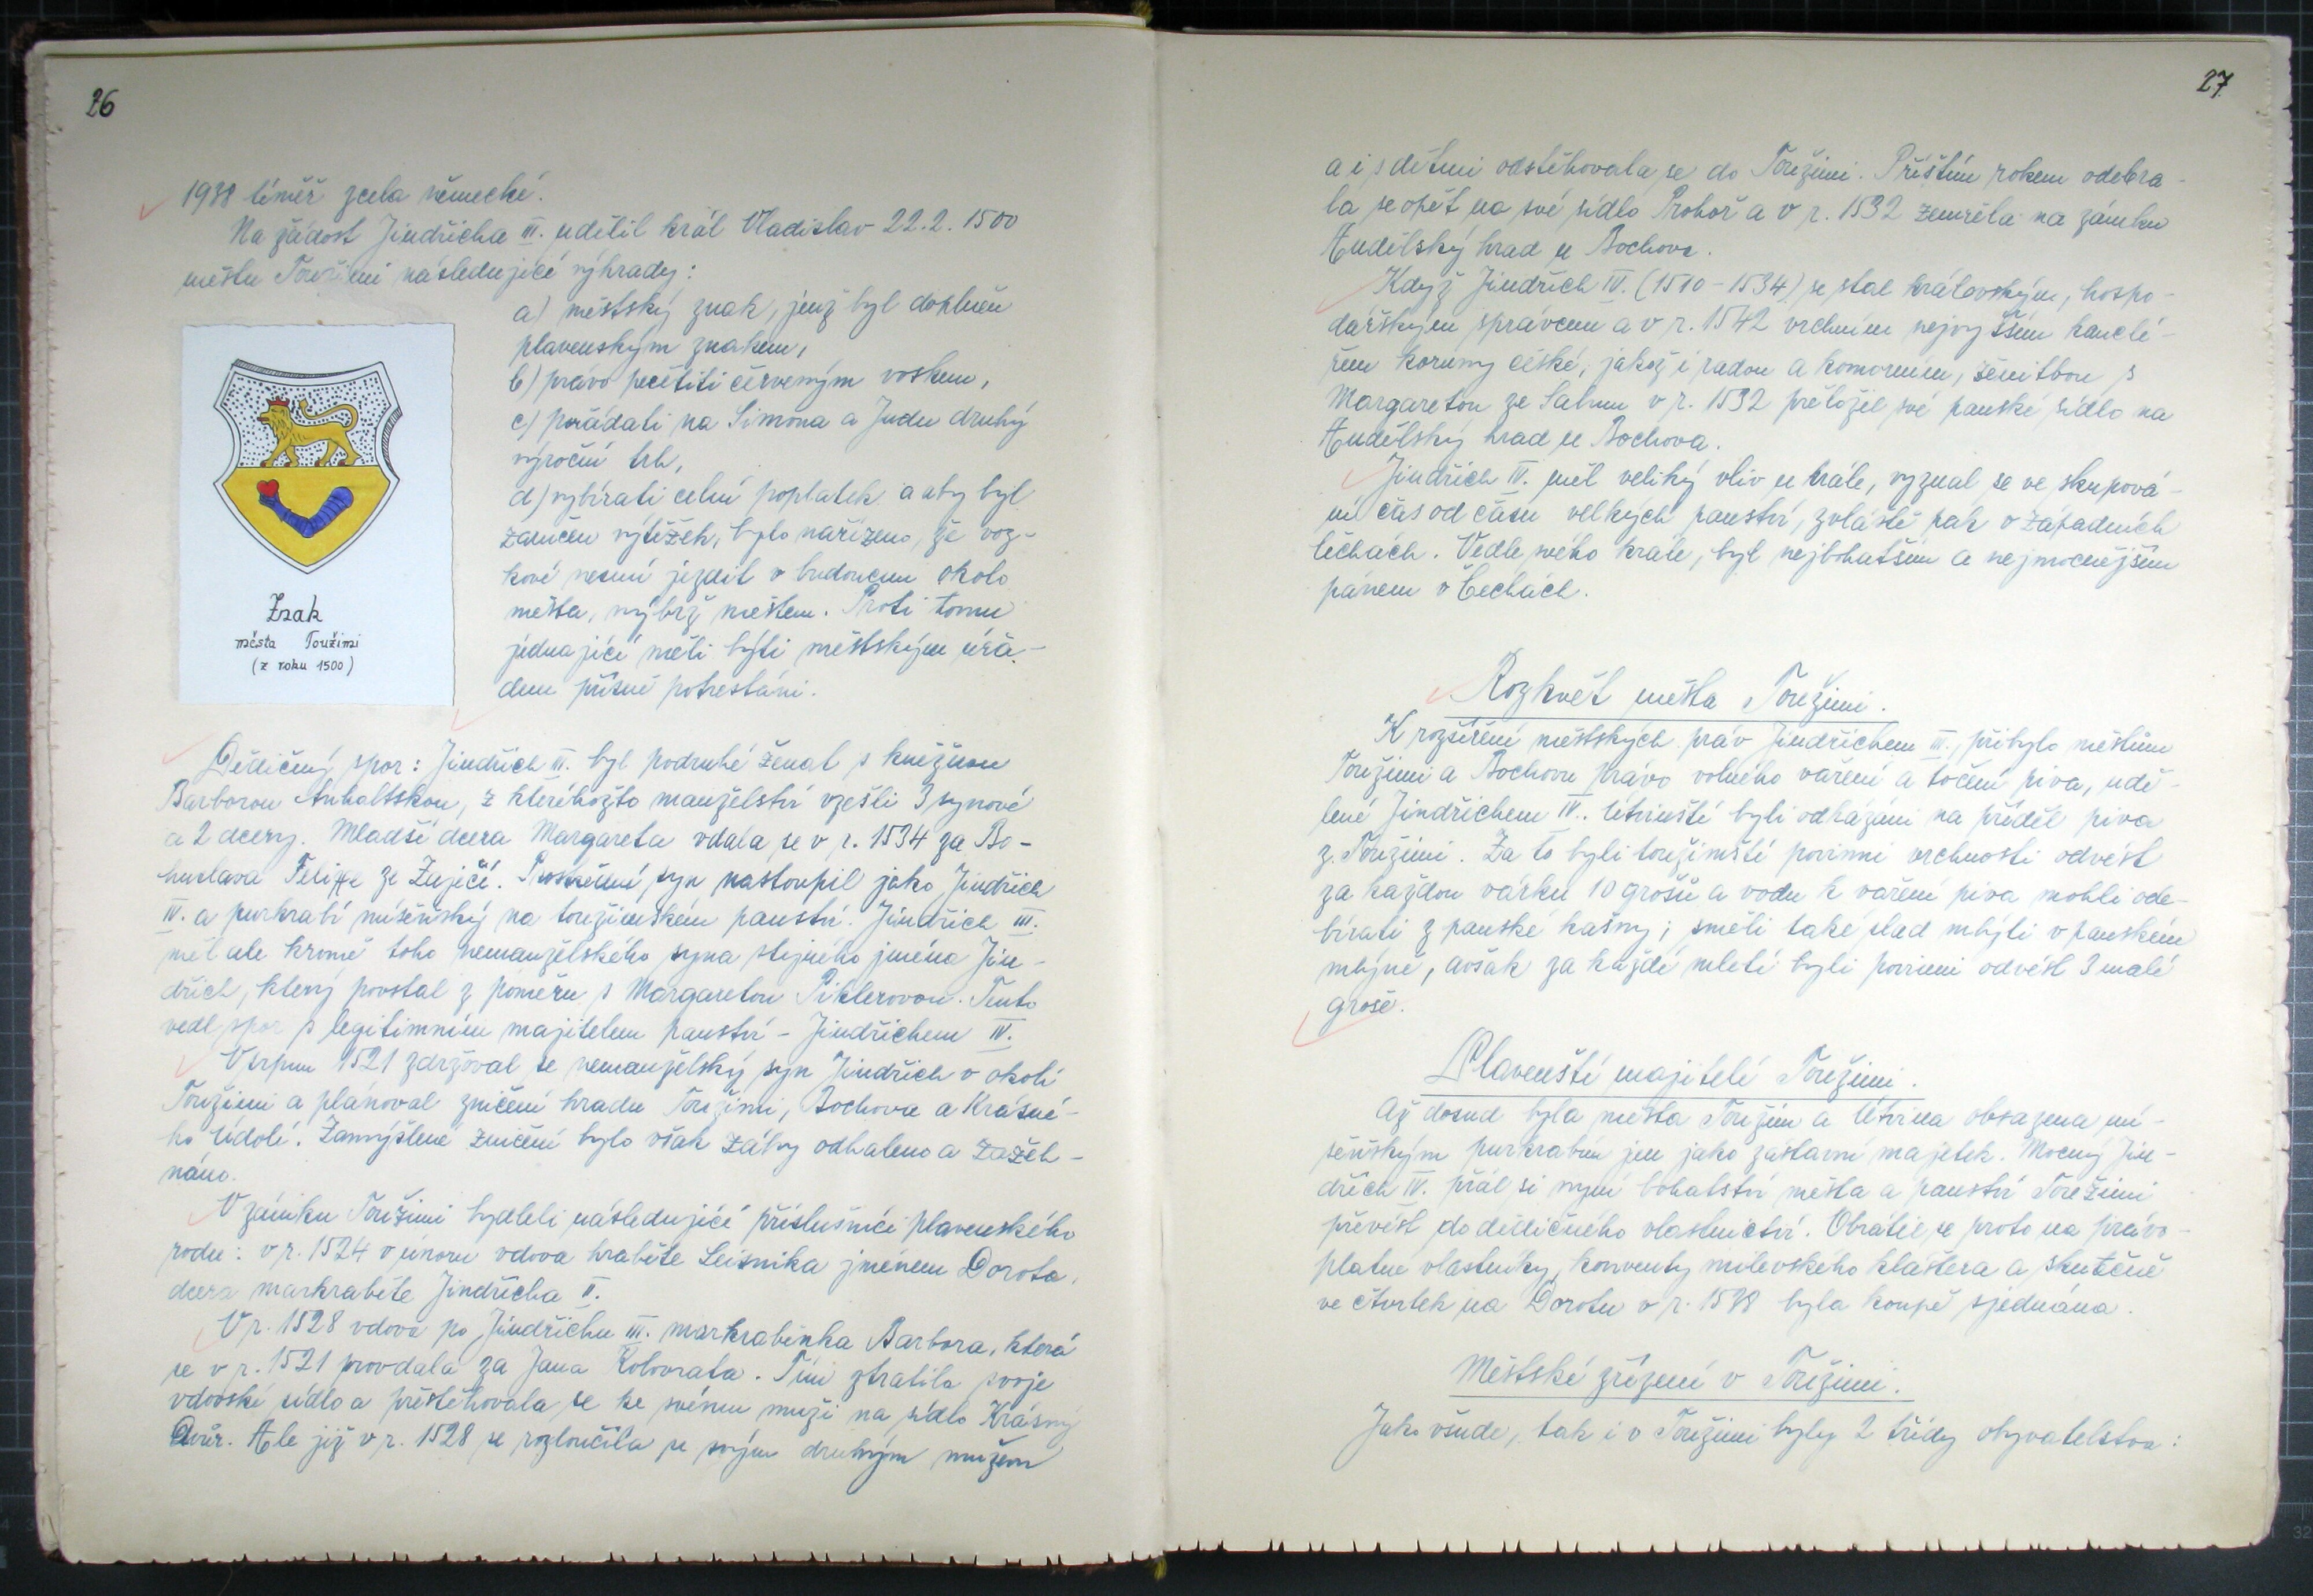 26
1938 téměř zcela německé.
Na žádost Jindřicha III. udělil král Vladislav 22.2.1500
městu Toužimi následující výhrady:
a) městský znak, jenž byl doplněn
plavenským znakem,
b) právo pečetiti červeným voskem,
c) pořádati na Šimona a Judu druhý
výroční trh,
d) vybírati celní poplatek a aby byl
zaručen výtěžek, bylo nařízeno, že voz-
kové nesmí jezdit v budoucnu okolo
města, nýbrž městem. Proti tomu
jednající měli býti městským úřa-
dem přísně potrestáni.
Znak
města Toužimi
(z roku 1500)
Dědičný spor: Jindřich III. byl podruhé ženat s kněžnou
Barborou Anhaltskou, z kteréhožto manželství vzešli 3 synové
a 2 dcery. Mladší dcera Margareta vdala se v r. 1534 za Bo-
huslava Felixe ze
syn nastoupil jako Jindřich
IV. a purkrabí míšeňský na toužimském panství. Jindřich III.
měl ale kromě toho nemanželského syna stejného jména Jin-
dřich, který povstal z poměru s Margaretou Piklerovou. Tento
vedl spor s legitimním majitelem panství - Jindřichem IV.
V srpnu 1521 zdržoval se nemanželský syn Jindřich v okolí
Toužimi a plánoval zničení hradu Toužimi, Bochova a Krásné-
ho Údolí. Zamýšlené zničení bylo však záhy odhaleno a zažeh-
náno.
V zámku Toužimi bydleli následující příslušníci plavenského
rodu: v r. 1524 v únoru vdova hraběte Leisnika jménem Dorota,
dcera markraběte Jindřicha II.
V r. 1528 vdova po Jindřichu III. markraběnka Barbora, která
se v r. 1521 provdala za Jana Kolovrata. Tím ztratila svoje
vdovské sídlo a přestěhovala se ke svému muži na sídlo Krásný
Dvůr. Ale již v r. 1528 se rozloučila se svým druhým mužem
27
a i s dětmi odstěhovala se do Toužimi. Příštím rokem odebra-
la se opět na své sídlo Prohoř a v r. 1532 zemřela na zámku
Andělský hrad u Bochova.
Když Jindřich IV. (1510-1534) se stal královským, hospo-
dářským správcem a v r. 1542 vrchním nejvyšším kanclé-
řem koruny české, jakož i radou a komorním, ženitbou s
Margaretou ze Salmu v r. 1532 přeložil své panské sídlo na
Andělský hrad u Bochova.
Jindřich IV. měl veliký vliv u krále, vyznal se ve skupová-
ní čas od času velkých panství, zvláště pak v západních
Čechách. Vedle svého krále, byl nejbohatším a nejmocnějším
pánem v Čechách.
Rozkvět města Toužimi.
K rozšíření městských práv Jindřichem III., přibylo městům
Toužimi a Bochovu právo volného vaření a točení piva, udě-
lené Jindřichem IV. Útvinští byli odkázáni na příděl piva
z Toužimi. Za to byli toužimští povinni vrchnosti odvést
za každou várku 10 grošů a vodu k vaření piva mohli ode-
bírati z panské kašny; směli také slad mlýti v panském
mlýně, avšak za každé mletí byli povinni odvést 3 malé
groše.
Plavenští majitelé Toužimi.
Až dosud byla města Toužim a Útvina obsazena mí-
šeňským purkrabím jen jako zástavní majetek. Mocný Jin-
dřich IV. přál si nyní bohatství města a panství Toužimi
převést do dědičného vlastnictví. Obrátil se proto na právo-
platné vlastníky, konventy milevského kláštera a skutečně
ve čtvrtek na Dorotu v r. byla koupě sjednána.
Městské zřízení v Toužimi.
Jako všude, tak i v Toužimi byly 2 třídy obyvatelstva: